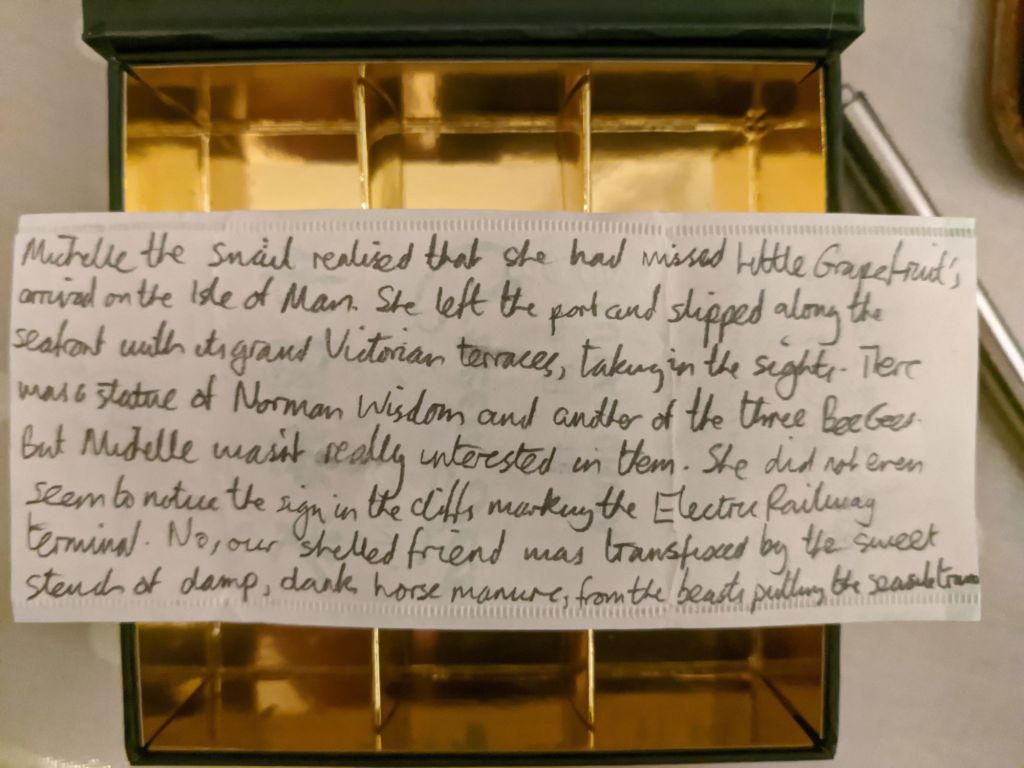 Michelle the Snail realised that she had missed Little Grapefruit's
arrival on the Isle of Man. She left the port and slipped along the
seafront with its grand Victorian terraces, taking in the sights. There
was a statue of Norman Wisdom and another of the three BeeGees.
But Michelle wasn't really interested in them. She did not even
seem to notice the sign in the cliffs marking the Electric Railway
terminal. No, our shelled friend was transfixed by the sweet
stench of damp, dank horse manure, from the beasts pulling the seaside trams